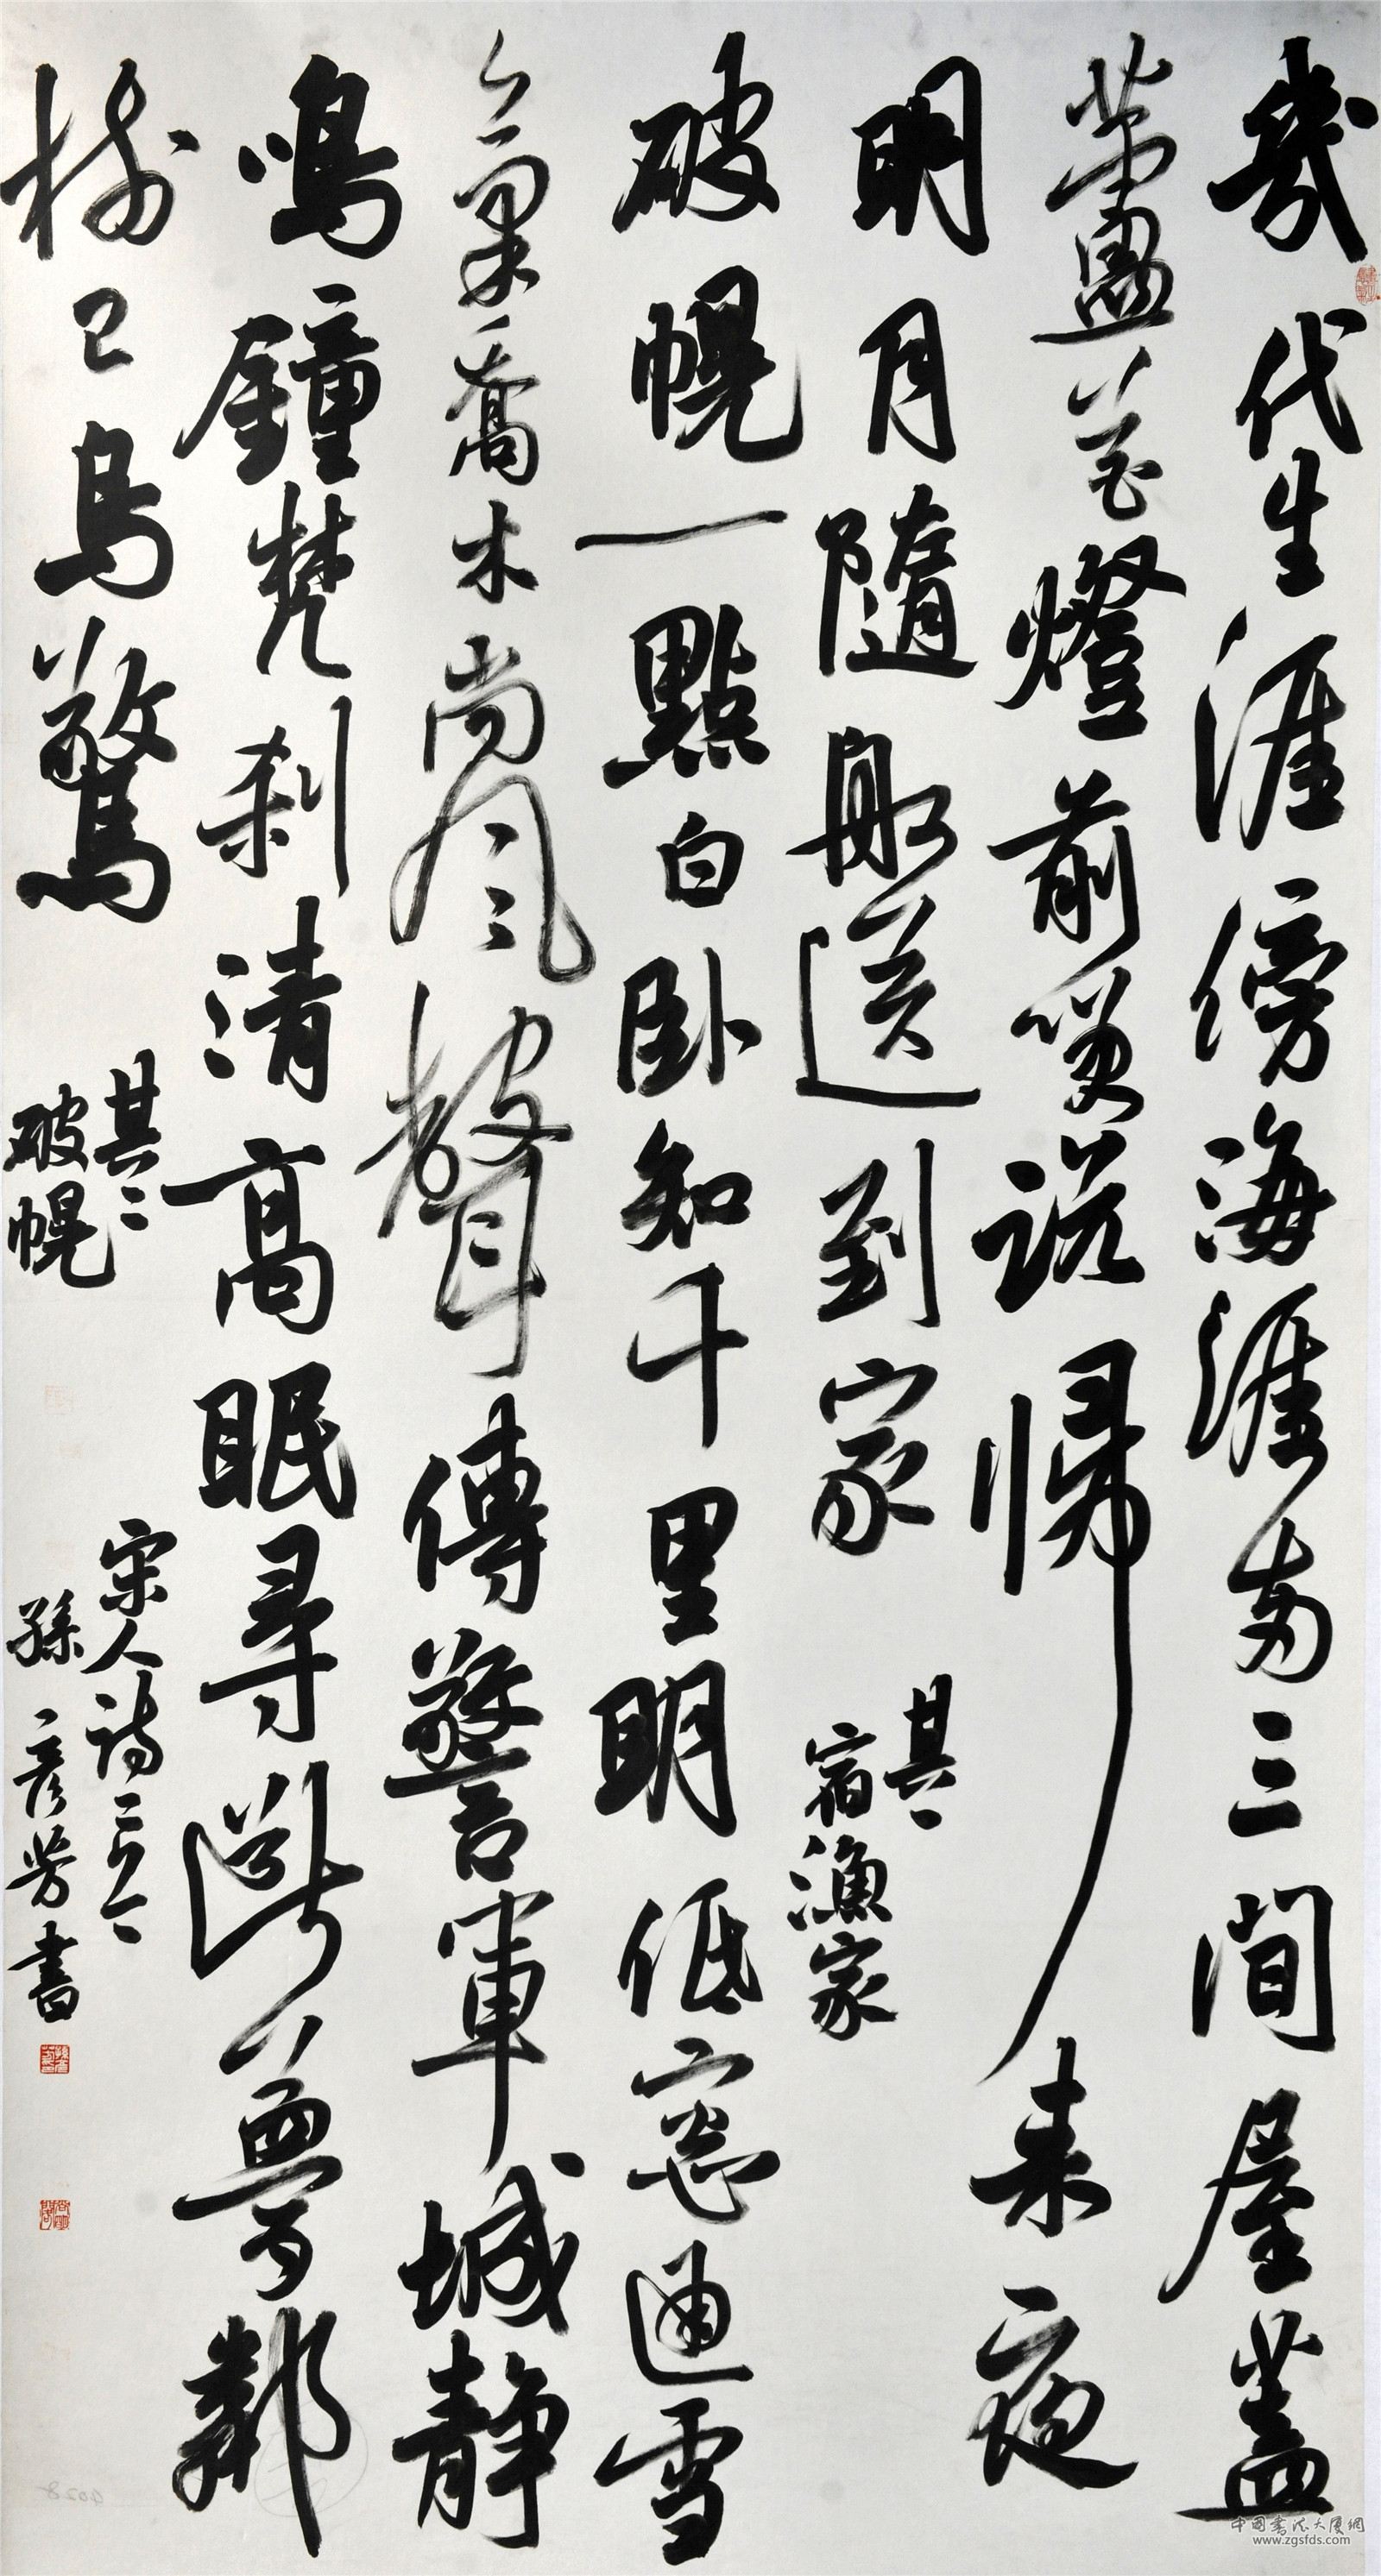 幾代生涯傍海涯兩三間屋蓋
蘆花燈前笑說歸來夜
明月隨船送到家
其一
宿漁家
破幌一點白卧知千里明低窓通雪
氣喬木尚風聲傳警軍城静
鳴鐘梵刹清高眠尋斷夢鄰
樹已烏驚
其二
破幌
宋人詩二首
孫彦芳書
中国書法大厦網
www.zgsfds.com